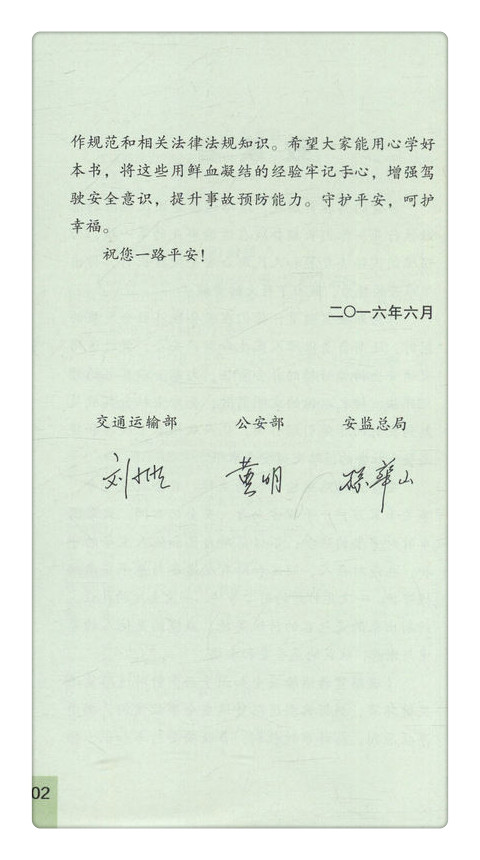 作规范和相关法律法规知识。希望大家能用心学好
本书，将这些用鲜血凝结的经验牢记于心，增强驾
驶安全意识，提升事故预防能力。守护平安，呵护
幸福。
祝您一路平安！
二〇一六年六月
交通运输部 公安部 安监总局
黄明 孙华山
02